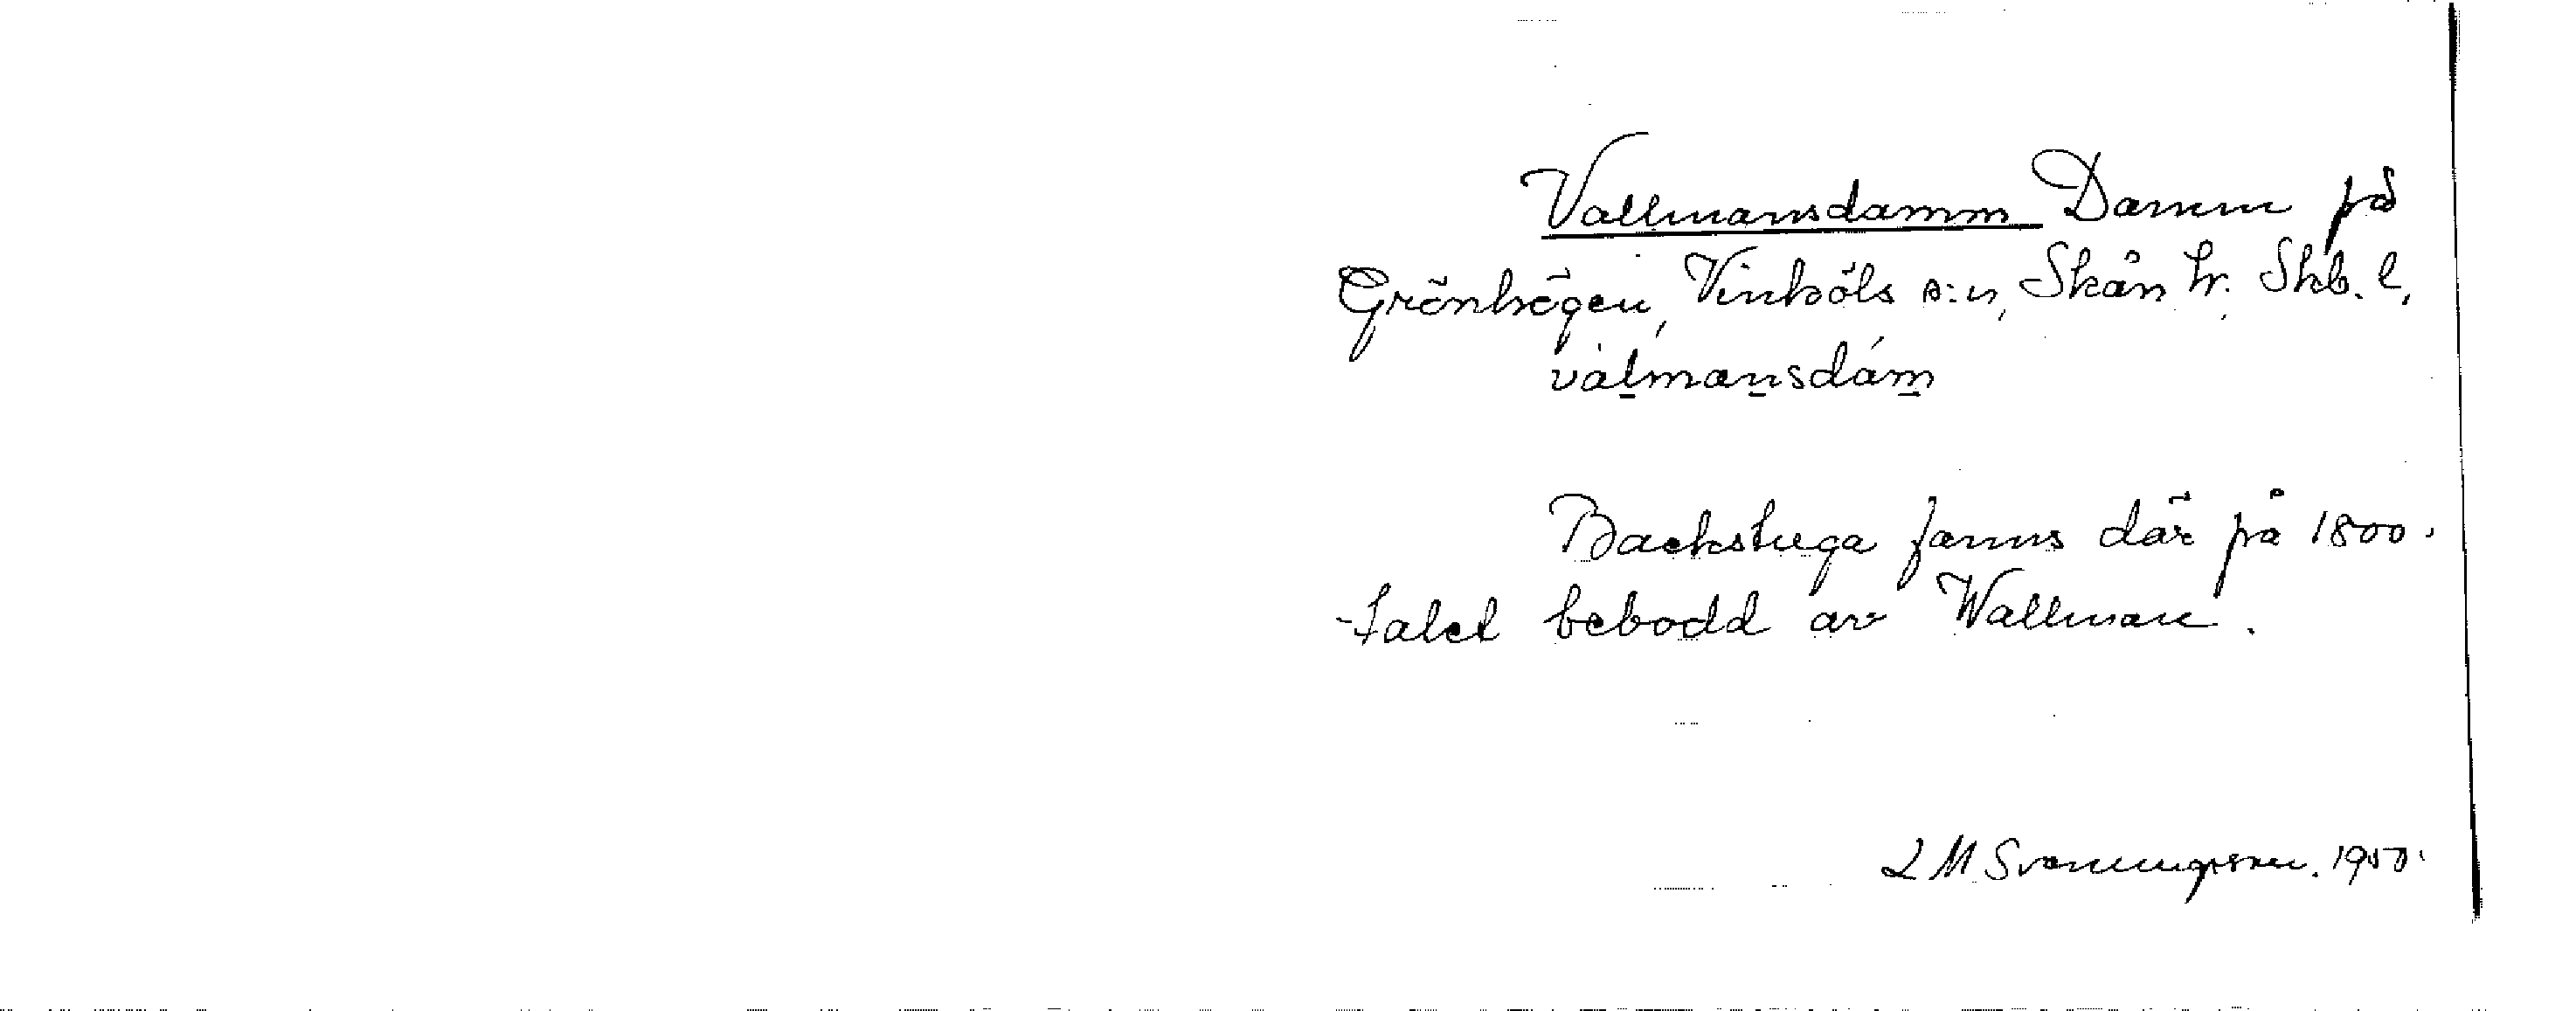 Vallmansdamm Damm på
Grönhögen, Vinköls s:n, Skån hr. Skb. l.
vàl̲man̲sdám̲
Backstuga fanns där på 1800-
-talet bebodd av Wallman.
L M Svenungsson. 1950.